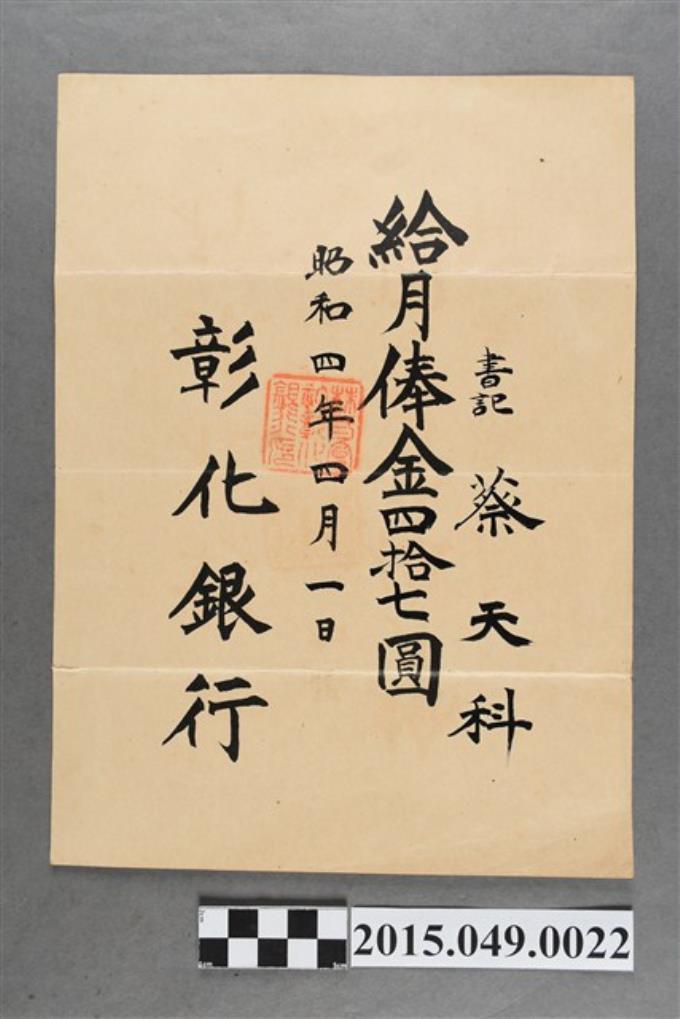 書記 蔡天科
給月俸金四拾七圓
昭和四年四月一日
彰化銀行
2015.049.0022